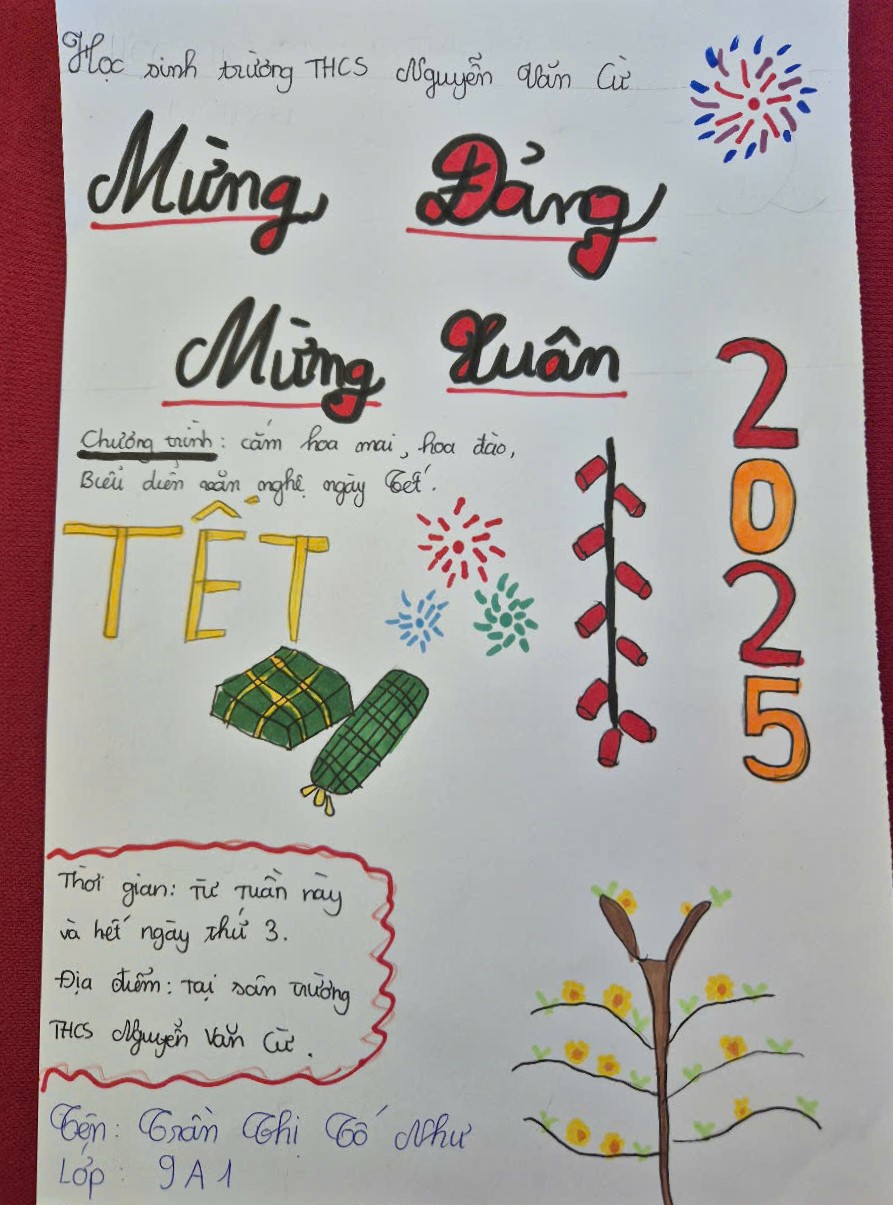 Học sinh trường THCS Nguyễn Văn Cừ
Mừng Đảng
Mừng Xuân
2025
Chương trình: cắm hoa mai, hoa đào,
Biểu diễn văn nghệ ngày Tết.
TẾT
Thời gian: Từ tuần này
và hết ngày thứ 3.
Địa điểm: Tại sân trường
THCS Nguyễn Văn Cừ.
Tên: Trần Thị Tố Như
Lớp: 9A1